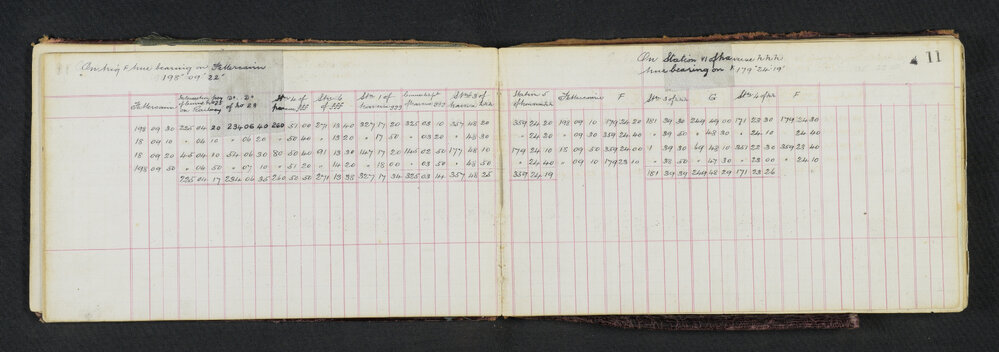 true bearing on Fettercairn
198° 09' 22"
Fettercairn
on Railway
of No 28
198 09 30 225 04 20 234 06 40 260 51 00 271 13 40 327 17 20 325 03 10 357 48 20
18 09 10 " 04 10 " 06 20 " 50 40 " 13 20 " 17 50 " 03 20 " 48 30
18 09 20 45 04 10 54 06 30 80 50 40 91 13 30 147 17 20 145 02 50 177 48 10
198 09 50 " 04 50 " 07 10 " 51 20 " 14 20 " 18 00 " 03 50 " 48 50
225 04 17 234 06 35 260 50 50 271 13 38 327 17 34 325 03 14 357 48 25
11
On Station of traverse hhh
true bearing on F 179° 24' 19"
Station 5 Fettercairn F Stn 3 of G Stn 4 of F
359 24 20 198 09 10 179 24 20 181 39 30 249 49 00 171 23 30 179 24 30
" 24 20 " 09 30 359 24 40 " 39 50 " 48 30 " 24 10 " 24 40
179 24 10 18 09 50 359 24 00 1 39 30 69 48 10 351 22 30 359 23 40
" 24 40 " 09 10 179 23 10 " 38 50 " 47 30 " 23 00 " 24 10
359 24 19 181 39 39 249 48 29 171 23 26